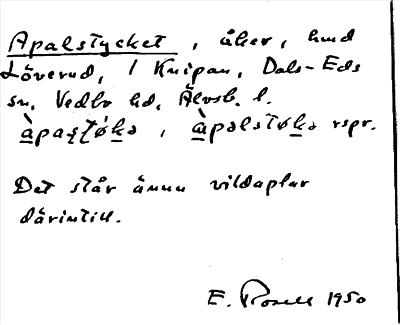 Apalstycket, åker, hmd
Löverud, / Knipan, Dals-Eds
sn, Vedbo hd, Älvsb. l.
àpaʂt̯ø̀kə, àpəlstøkə rspr.
Det står ännu vildaplar
därintill.
E. Rosell 1950